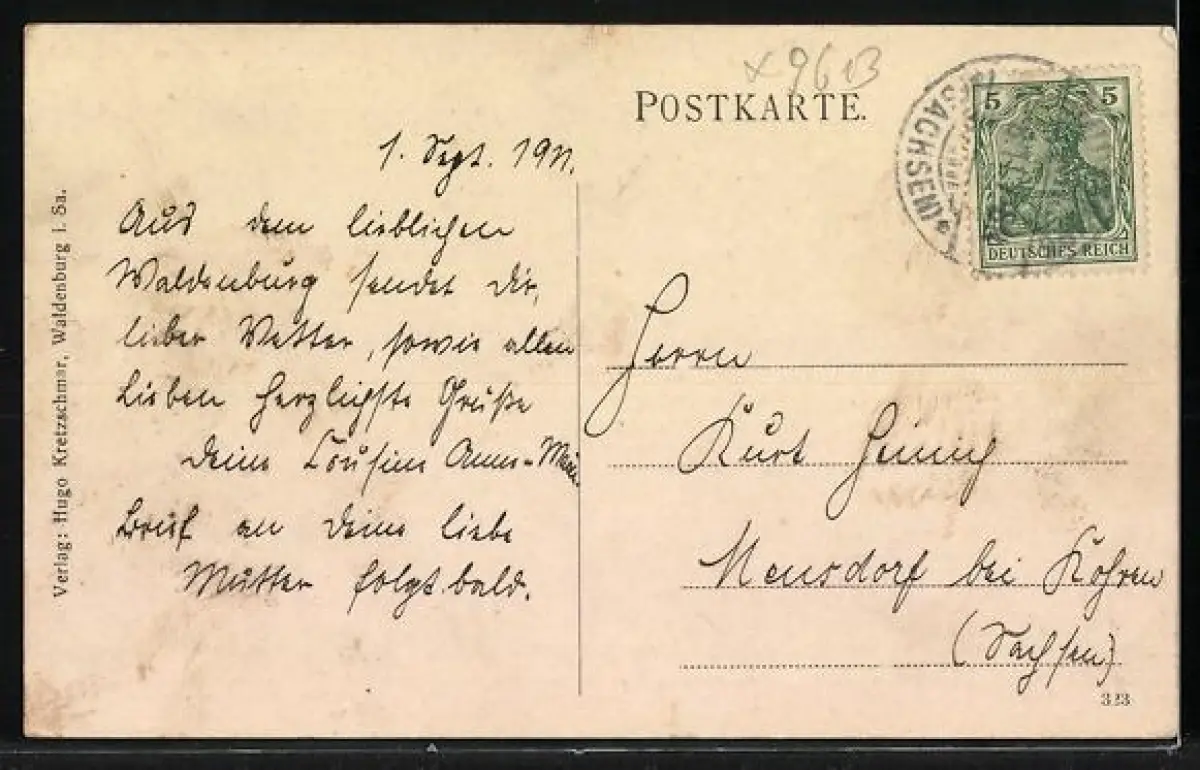 × 96 B
POSTKARTE.
5 5
DEUTSCHES REICH
(SACHSEN)
1. Sept. 1911.
Aus dem lieblichen
Waldenburg sendet Dir,
lieber Vetter, sowie allen
Lieben herzlichste Grüße
Deine Cousine Anne-Marie.
Brief an Deine liebe
Mutter folgt bald.
Herrn
Kurt Heinich
Mensdorf bei Kohren
(Sachsen)
323
Verlag: Hugo Kretzschmar, Waldenburg i. Sa.